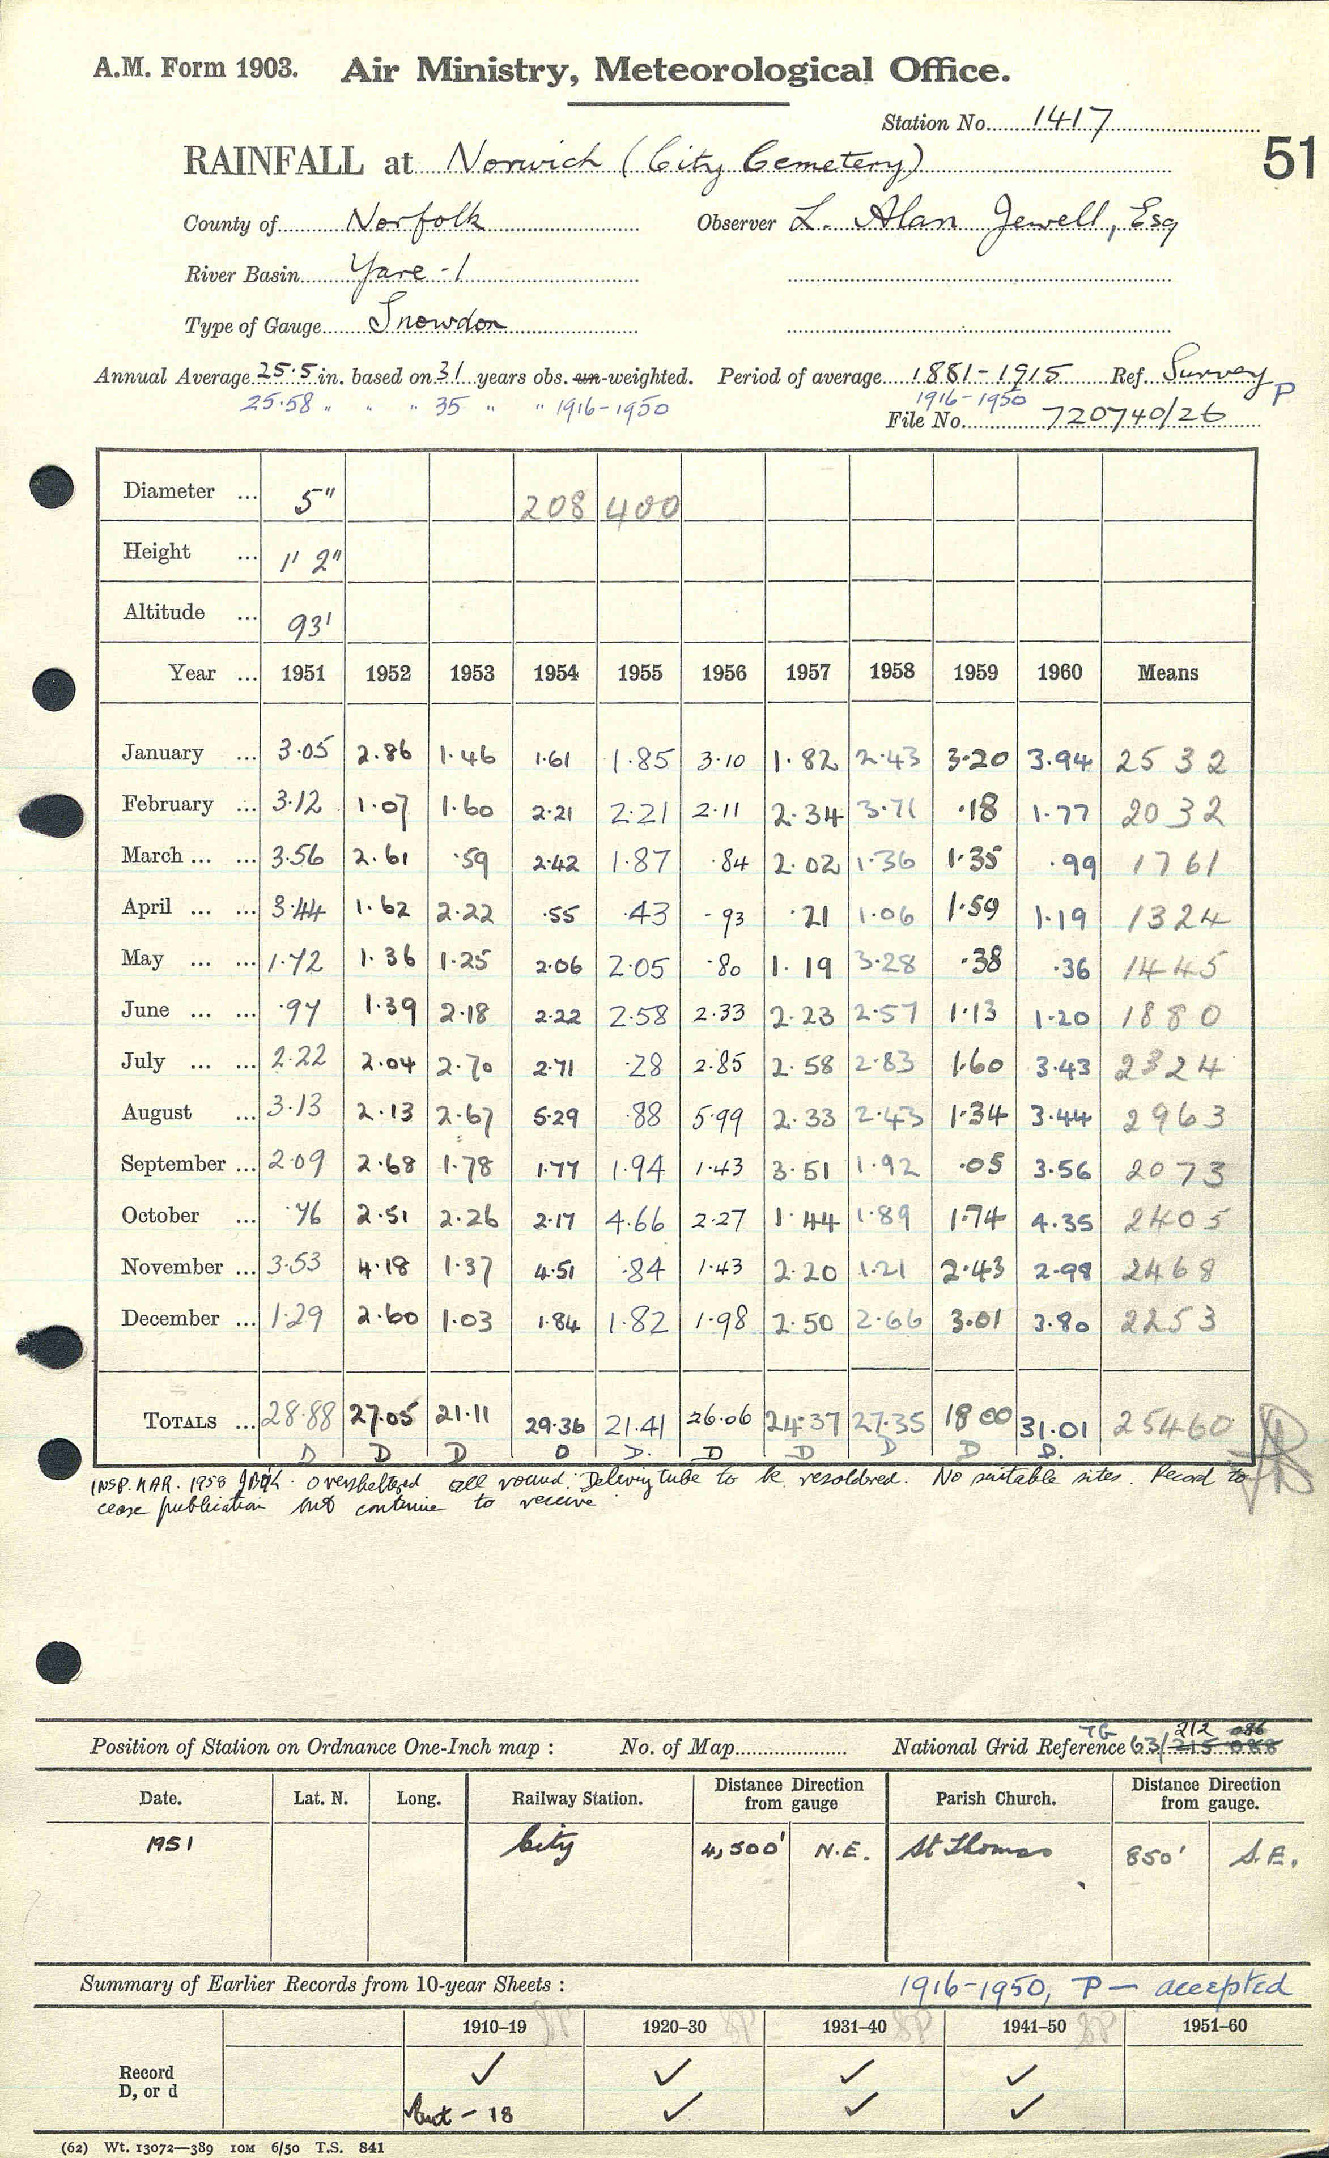 A.M. Form 1903. Air Ministry, Meteorological Office.
Station No. 1417
RAINFALL at Norwich (City Cemetery)
51
County of Norfolk Observer L. Alan Jewell, Esq
River Basin Yare - 1
Type of Gauge Snowdon
Annual Average 25.5 in. based on 31 years obs. un-weighted. Period of average 1881-1915 Ref. Survey P
25.58 " " " 35 " " 1916-1950 1916-1950
File No. 720740/26
Diameter ... 5" 208 400
Height ... 1' 2"
Altitude ... 93'
Year ... 1951 1952 1953 1954 1955 1956 1957 1958 1959 1960 Means
January ... 3.05 2.86 1.46 1.61 1.85 3.10 1.82 2.43 3.20 3.94 2532
February ... 3.12 1.07 1.60 2.21 2.21 2.11 2.34 3.71 .18 1.77 2032
March ... ... 3.56 2.61 .59 2.42 1.87 .84 2.02 1.36 1.35 .99 1761
April ... ... 3.44 1.62 2.22 .55 .43 .93 .21 1.06 1.59 1.19 1324
May ... ... 1.72 1.36 1.25 2.06 2.05 .80 1.19 3.28 .38 .36 1445
June ... ... .97 1.39 2.18 2.22 2.58 2.33 2.23 2.57 1.13 1.20 1880
July ... ... 2.22 2.04 2.70 2.71 .28 2.85 2.58 2.83 1.60 3.43 2324
August ... 3.13 2.13 2.67 5.29 .88 5.99 2.33 2.43 1.34 3.44 2963
September ... 2.09 2.68 1.78 1.77 1.94 1.43 3.51 1.92 .05 3.56 2073
October ... .76 2.51 2.26 2.17 4.66 2.27 1.44 1.89 1.74 4.35 2405
November ... 3.53 4.18 1.37 4.51 .84 1.43 2.20 1.21 2.43 2.98 2468
December ... 1.29 2.60 1.03 1.84 1.82 1.98 2.50 2.66 3.01 3.80 2253
TOTALS ... 28.88 27.05 21.11 29.36 21.41 26.06 24.37 27.35 18.00 31.01 25460
D D D D D. D D D D D.
INSP. MAR. 1958 Oversheltered all round. Delivery tube to be resoldered. No suitable sites. Record to
cease publication but continue to receive
Position of Station on Ordnance One-Inch map : No. of Map National Grid Reference TG 63/ 215 088 212 086
Date. Lat. N. Long. Railway Station. Distance Direction from gauge Parish Church. Distance Direction from gauge.
1951 City 4,500' N.E. St Thomas 850' S.E.
Summary of Earlier Records from 10-year Sheets : 1916-1950, P — accepted
1910–19 1920–30 1931–40 1941–50 1951–60
Record ✓ ✓ ✓ ✓
D, or d - 18 ✓ ✓ ✓
(62) Wt. 13072—389 IOM 6/50 T.S. 841